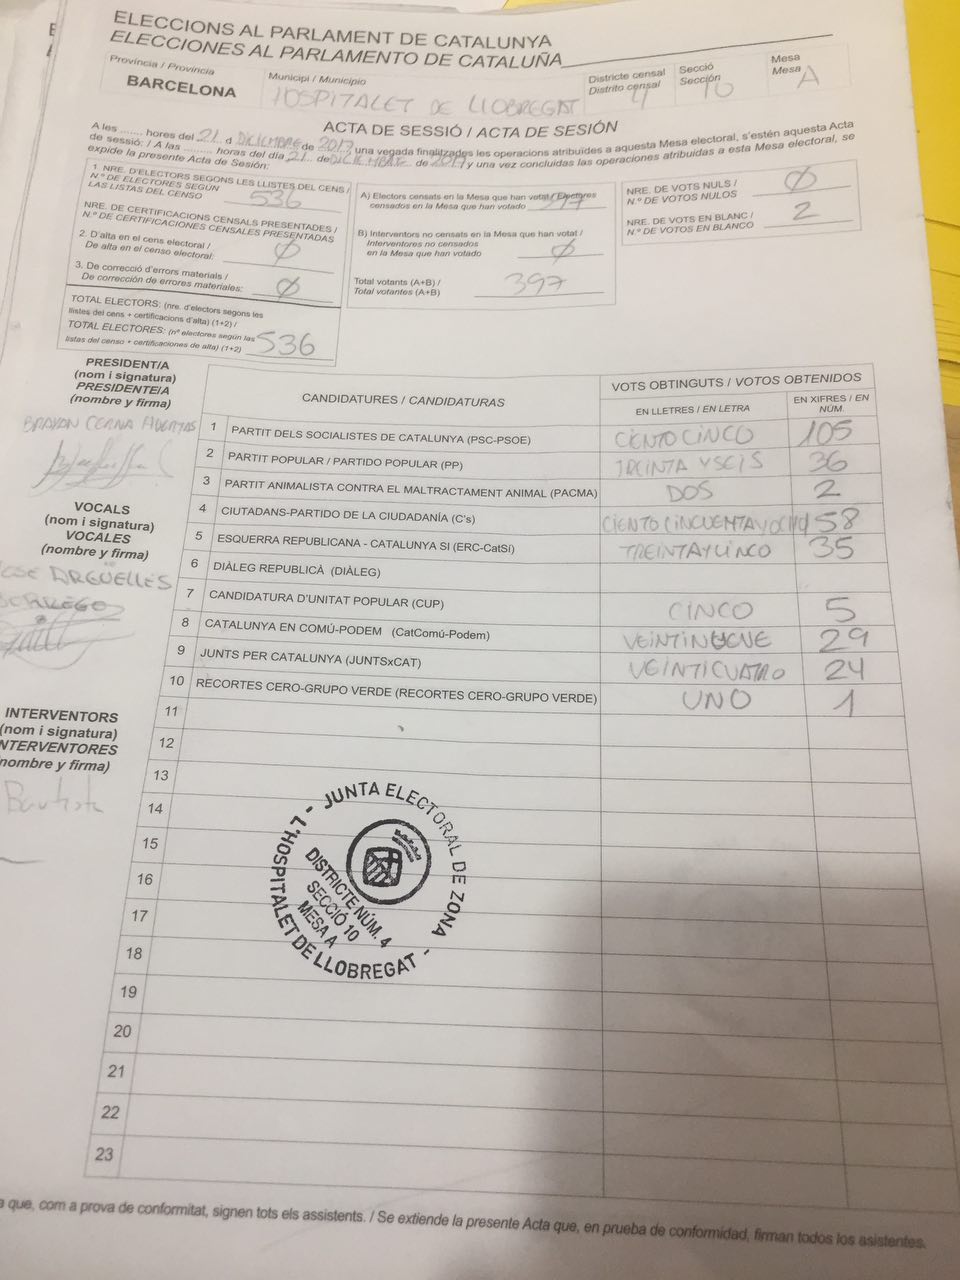 ELECCIONS AL PARLAMENT DE CATALUNYA
ELECCIONES AL PARLAMENTO DE CATALUÑA
Província / Provincia
BARCELONA
Municipi / Municipio
HOSPITALET DE LLOBREGAT
Districte censal
Distrito censal
4
Secció
Sección
10
Mesa
Mesa
A
ACTA DE SESSIÓ / ACTA DE SESIÓN
A les ....... hores del 21 d DICIEMBRE de 2017 una vegada finalitzades les operacions atribuïdes a aquesta Mesa electoral, s'estén aquesta Acta
de sessió: / A las ......... horas del día 21 de DICIEMBRE de 2017 y una vez concluidas las operaciones atribuidas a esta Mesa electoral, se
expide la presente Acta de Sesión:
1. NRE. D'ELECTORS SEGONS LES LLISTES DEL CENS /
N.º DE ELECTORES SEGÚN
LAS LISTAS DEL CENSO 536
NRE. DE CERTIFICACIONS CENSALS PRESENTADES /
N.º DE CERTIFICACIONES CENSALES PRESENTADAS
2. D'alta en el cens electoral /
De alta en el censo electoral: Ø
3. De correcció d'errors materials /
De corrección de errores materiales: Ø
TOTAL ELECTORS: (nre. d'electors segons les
llistes del cens + certificacions d'alta) (1+2) /
TOTAL ELECTORES: (nº electores según las
listas del censo + certificaciones de alta) (1+2) 536
A) Electors censats en la Mesa que han votat / Electores
censados en la Mesa que han votado 397
B) Interventors no censats en la Mesa que han votat /
Interventores no censados
en la Mesa que han votado Ø
Total votants (A+B) /
Total votantes (A+B) 397
NRE. DE VOTS NULS /
N.º DE VOTOS NULOS Ø
NRE. DE VOTS EN BLANC /
N.º DE VOTOS EN BLANCO 2
PRESIDENT/A
(nom i signatura)
PRESIDENTE/A
(nombre y firma)
BRAYAN CERNA HUERTAS
VOCALS
(nom i signatura)
VOCALES
(nombre y firma)
JOSE ARGUELLES
BORREGO
INTERVENTORS
(nom i signatura)
INTERVENTORES
(nombre y firma)
Bautista
CANDIDATURES / CANDIDATURAS
VOTS OBTINGUTS / VOTOS OBTENIDOS
EN LLETRES / EN LETRA
EN XIFRES / EN NÚM.
1 PARTIT DELS SOCIALISTES DE CATALUNYA (PSC-PSOE) CIENTO CINCO 105
2 PARTIT POPULAR / PARTIDO POPULAR (PP) TREINTA Y SEIS 36
3 PARTIT ANIMALISTA CONTRA EL MALTRACTAMENT ANIMAL (PACMA) DOS 2
4 CIUTADANS-PARTIDO DE LA CIUDADANÍA (C's) CIENTO CINCUENTA Y OCHO 158
5 ESQUERRA REPUBLICANA - CATALUNYA SI (ERC-CatSí) TREINTA Y CINCO 35
6 DIÀLEG REPUBLICÀ (DIÀLEG)
7 CANDIDATURA D'UNITAT POPULAR (CUP) CINCO 5
8 CATALUNYA EN COMÚ-PODEM (CatComú-Podem) VEINTINUEVE 29
9 JUNTS PER CATALUNYA (JUNTSxCAT) VEINTICUATRO 24
10 RECORTES CERO-GRUPO VERDE (RECORTES CERO-GRUPO VERDE) UNO 1
11
12
13
14
15
16
17
18
19
20
21
22
23
JUNTA ELECTORAL DE ZONA -
L'HOSPITALET DE LLOBREGAT -
DISTRICTE NÚM. 4
SECCIÓ 10
MESA A
que, com a prova de conformitat, signen tots els assistents. / Se extiende la presente Acta que, en prueba de conformidad, firman todos los asistentes.